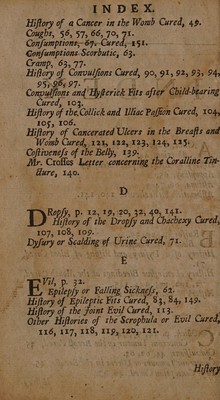 INDEX.
History of a Cancer in the Womb Cured, 49.
Coughs, 56, 57, 66, 70, 71.
Consumptions, 67. Cured, 151.
Consumptions Scorbutic, 63.
Cramp, 63, 77.
History of Convulsions Cured, 90, 91, 92, 93, 94,
95, 96, 97.
Convulsions and Hysterick Fits after Child-bearing
Cured, 103.
History of the Collick and Illiac Passion Cured, 104,
105, 106.
History of Cancerated Ulcers in the Breasts and
Womb Cured, 121, 122, 123, 124, 125.
Costiveness of the Belly, 139.
Mr. Crosses Letter concerning the Coralline Tin-
cture, 140.
D
DRopsy, p. 12, 19, 20, 32, 40, 141.
History of the Dropsy and Chachexy Cured,
107, 108, 109.
Dysury or Scalding of Urine Cured, 71.
E
EVil, p. 32.
Epilepsy or Falling Sickness, 62.
History of Epileptic Fits Cured, 83, 84, 149.
History of the Joint Evil Cured, 113.
Other Histories of the Scrophula or Evil Cured,
116, 117, 118, 119, 120, 121.
History